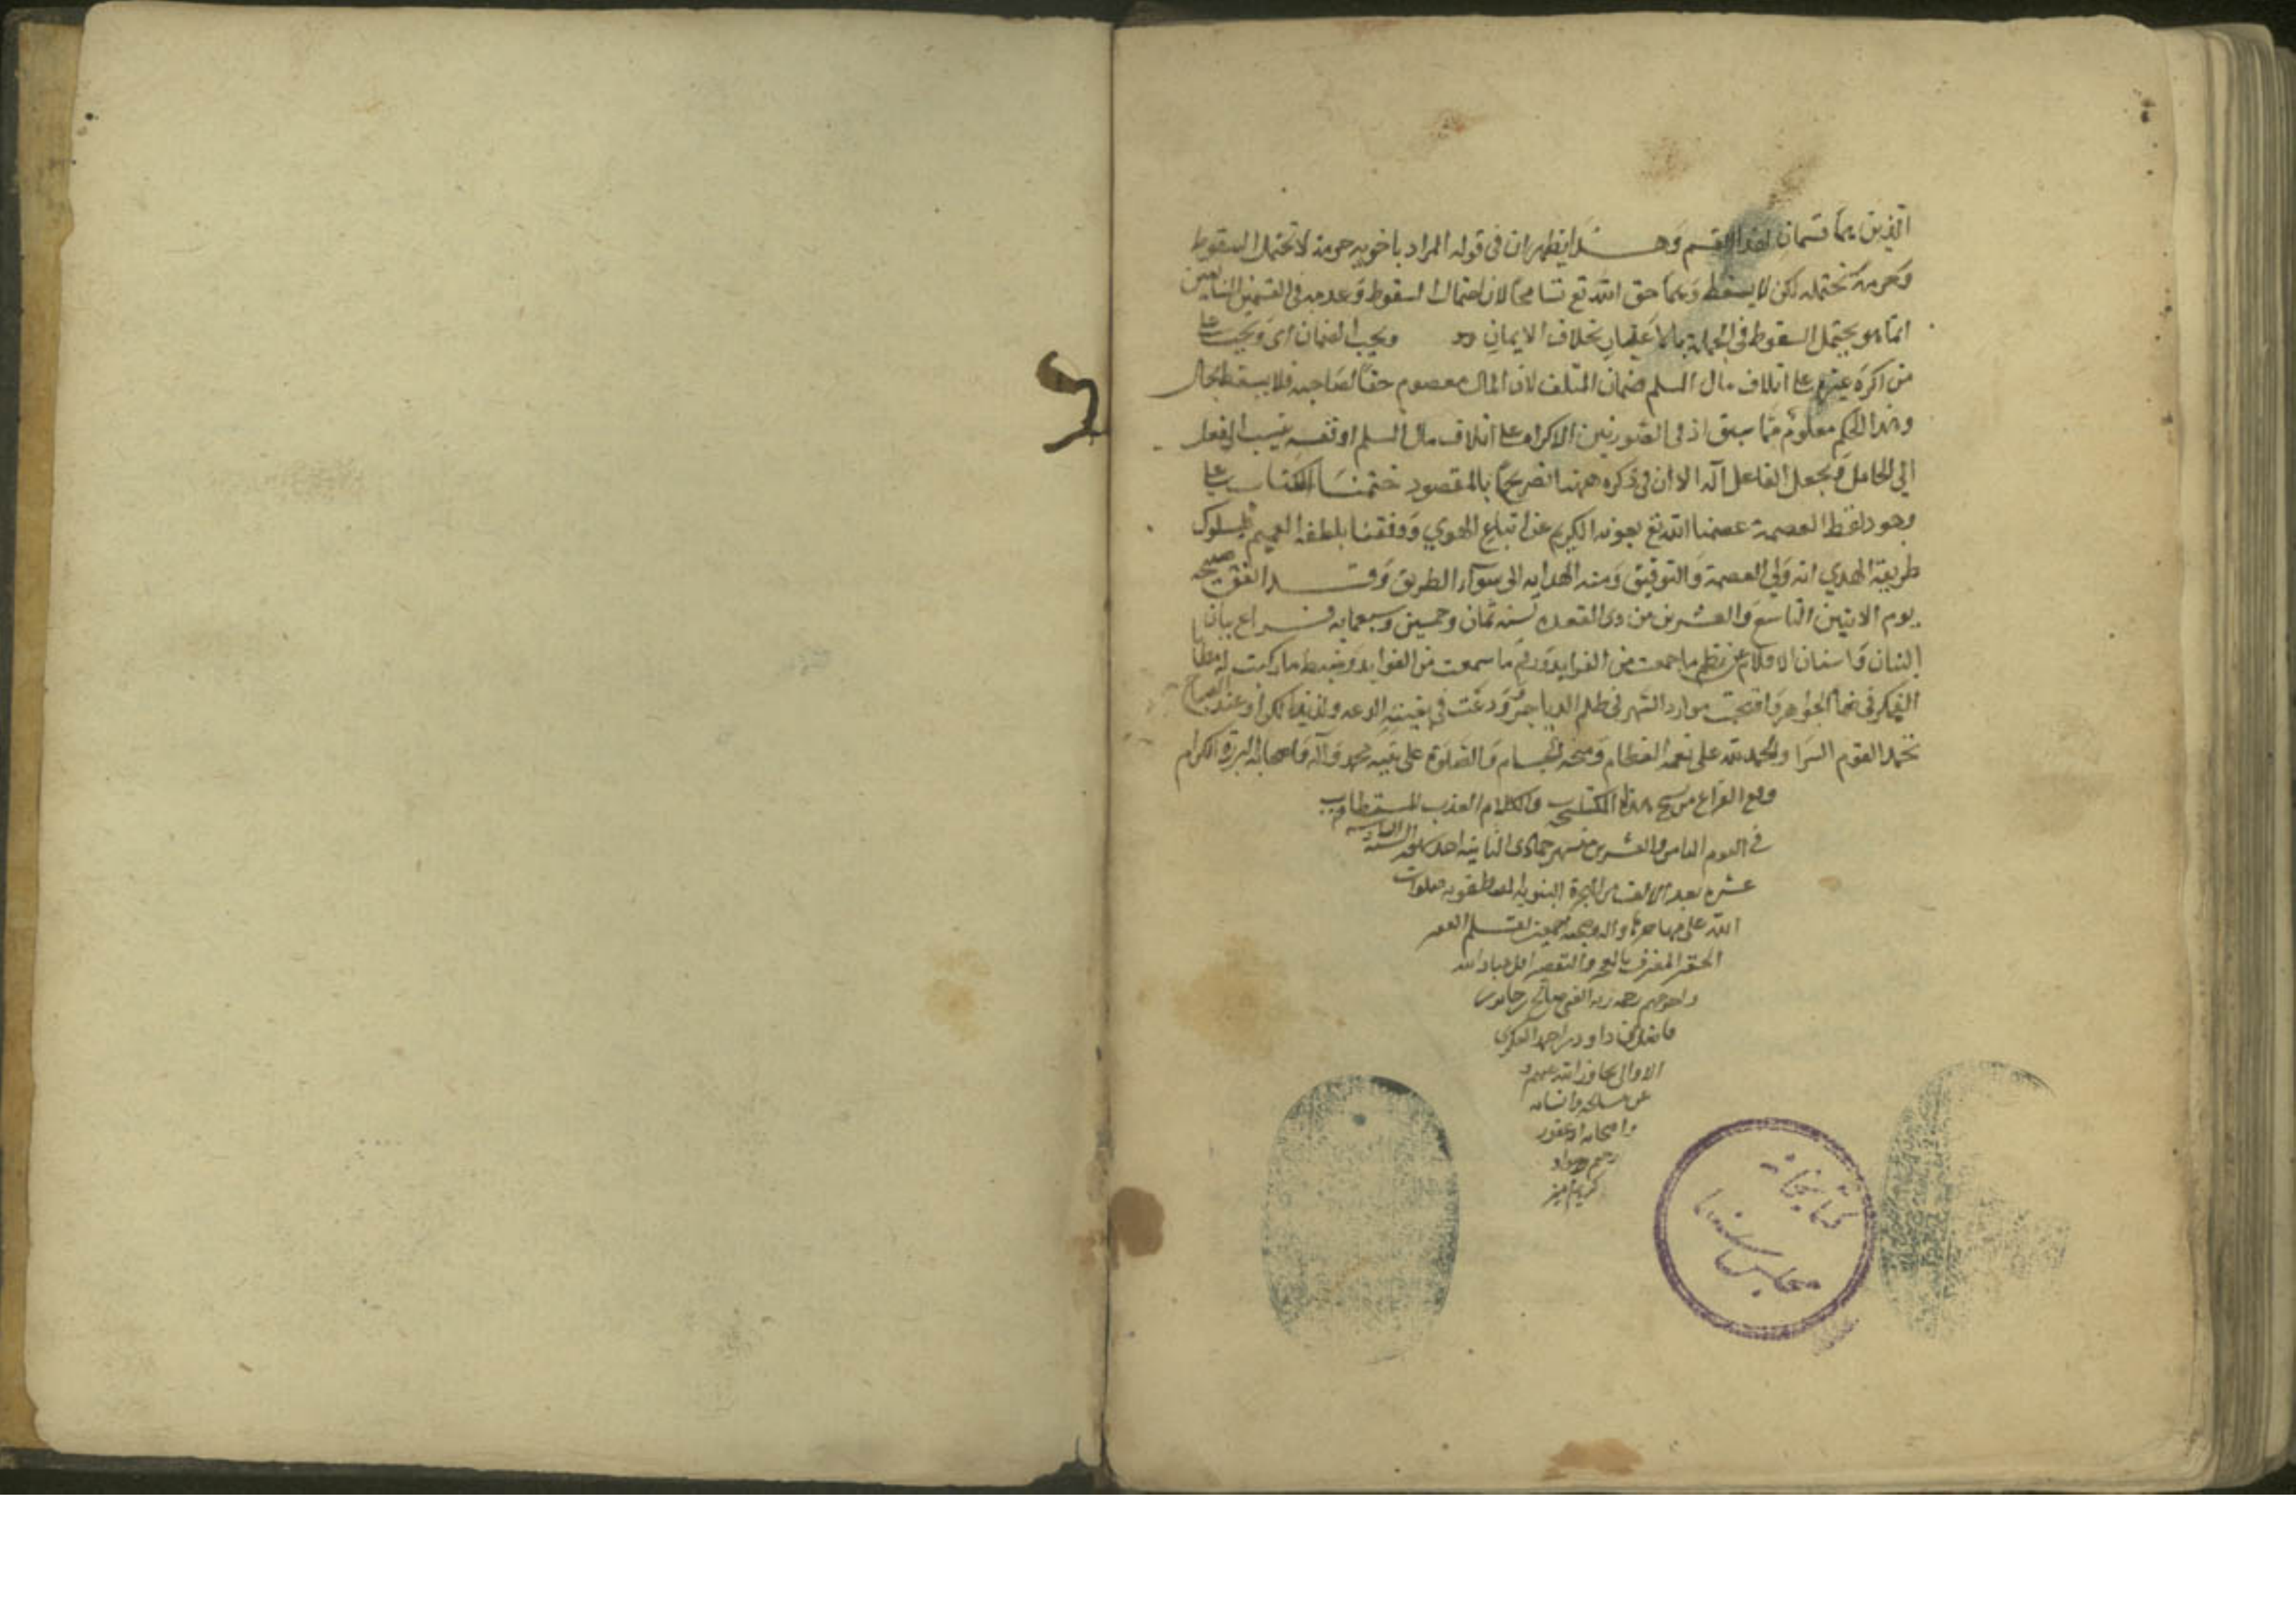 الذين هما قسمان لهذا القسم وهذا يظهر ان في قوله المراد باخويه حرمة لا تحتمل السقوط
وحرمة تحتمله لكن لا يسقط وهما حق الله تع تسامحا لان احتمال السقوط وعدمه في القسمين
انما هو يحتمل السقوط في الجملة بخلاف الايمان ويجب الضمان اى ويجب على
من اكره غيره على اتلاف مال المسلم ضمان المتلف لان المال معصوم حقا لصاحبه فلا يسقط بحال
وهذا الحكم معلوم مما سبق اذ في الصورتين الاكراه على اتلاف مال المسلم او نفسه ينسب الفعل
الي الحامل ويجعل الفاعل آلة الا ان في ذكره ههنا تصريحا بالمقصود ختمنا الكتاب على
وهو لفظ العصمة عصمنا الله تع بعونه الكريم عن اتباع الهوي ووفقنا بلطفه العميم لسلوك
طريقة الهدي انه ولي العصمة والتوفيق ومنه الهداية الى سوآء الطريق وقد اتفق صبيحة
يوم الاثنين التاسع والعشرين من ذى القعدة لسنة ثمان وخمسين وسبعمايه فراغ بنان
البنان واسنان الاقلام عن نظم ما جمعت من الفرايد ورقم ما سمعت من الفوايد وضبط ما ركبت له مطايا
الفكر في الهواجر واقتحمت موارد السهر في ظلم الدياجر وودعت في بغيته الدعة ولذيذ الكرا وعند الصباح
تحمد القوم السرا والحمد لله على نعمه العظام ومنحه الجسام والصلوة على نبيه محمد وآله واصحابه البررة الكرام
وقع الفراغ من نسخ هذا الكتاب والكلام العذب المستطاب
في اليوم الثامن والعشرين من شهر جمادى الثانية احد شهور السنة السادسة
عشره بعد الالف من الهجرة النبوية المصطفوية صلوات
الله على مهاجرها واله وصحبه اجمعين بقلم الفقير
الحقير المعترف بالعجز والتقصير اقل عباد الله
واحوجهم رحمة ربه الغني صالح بن جابر بن
فاضل بن داود بن احمد العكري
الاوالي تجاوز الله عنهم و
عن
واصحابه انه غفور
رحيم جواد
كريم امين
كتابخانه
مجلس سنا